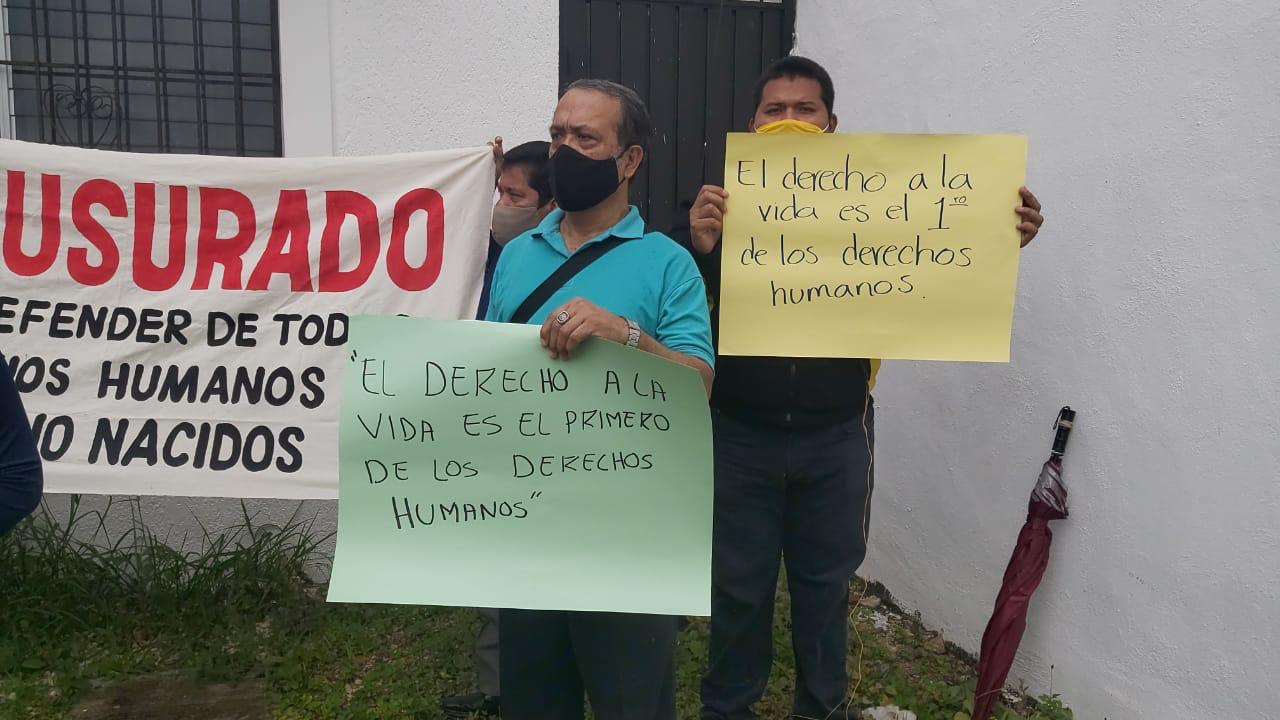 USURADO
EFENDER DE TOD
HUMANOS
NO NACIDOS
"EL DERECHO A LA
VIDA ES EL PRIMERO
DE LOS DERECHOS
HUMANOS"
El derecho a la
vida es el 1ro
de los derechos
humanos.